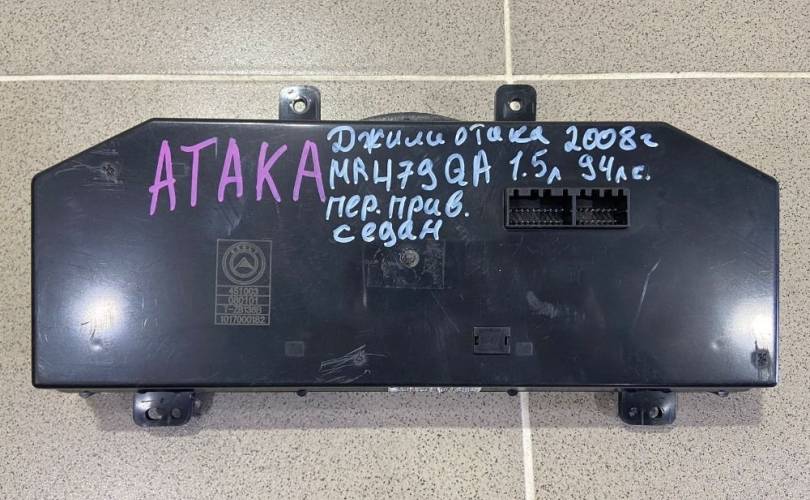 АТАКА
Джили отака 2008г
MR479QA 1.5л 94лс.
пер. прив.
седан
451003
080101
1017000182